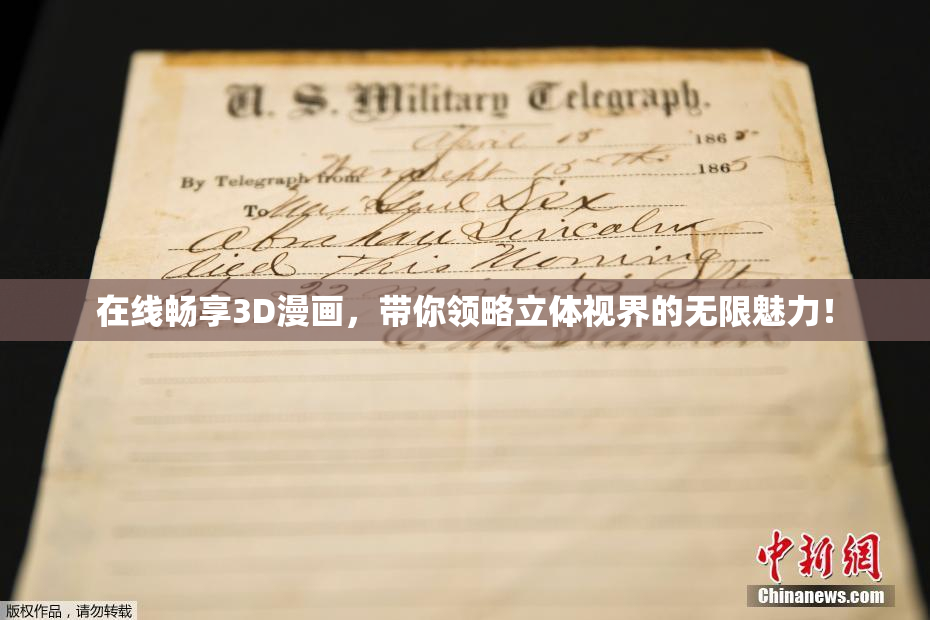 U. S. Military Telegraph.
April 15 1865
By Telegraph from War Dept 15th 1865
To Maj Genl Dix
Abraham Lincoln
died This Morning
at 22 minutes after
在线畅享3D漫画，带你领略立体视界的无限魅力！
E. M. Stanton
中新网
Chinanews.com
版权作品，请勿转载